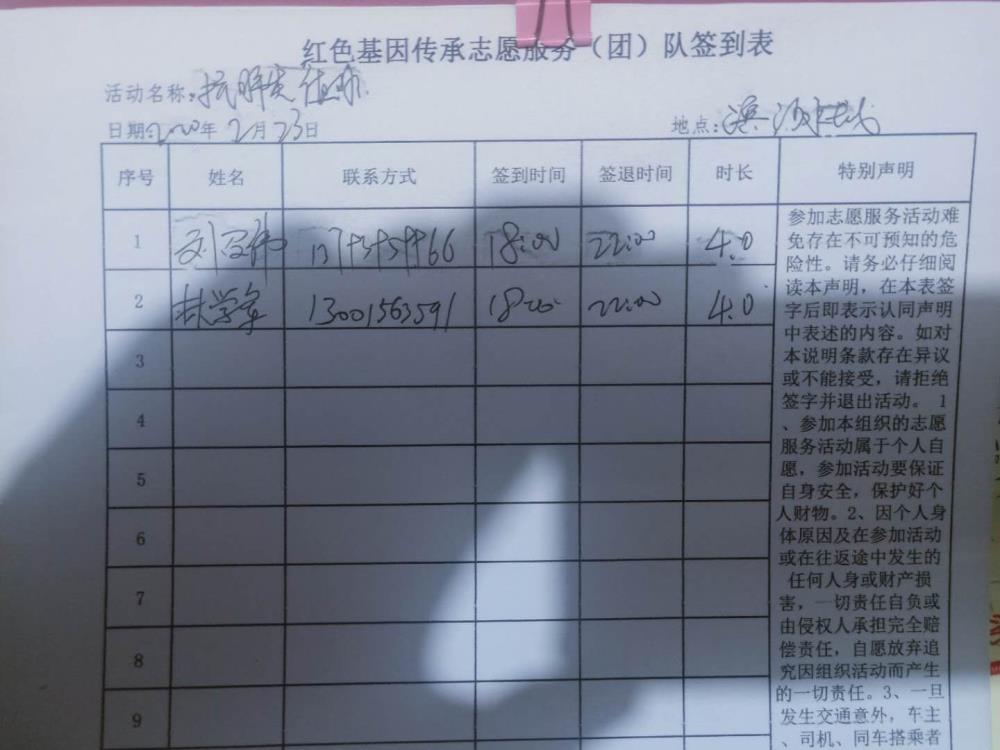 红色基因传承志愿服务（团）队签到表
活动名称：
日期：2020年2月23日
地点：
序号 姓名 联系方式 签到时间 签退时间 时长 特别声明
1 刘 18:00 22:00 4.0
2 林学军 13001563591 18:00 22:00 4.0
3
4
5
6
7
8
9
参加志愿服务活动难
免存在不可预知的危
险性。请务必仔细阅
读本声明，在本表签
字后即表示认同声明
中表述的内容。如对
本说明条款存在异议
或不能接受，请拒绝
签字并退出活动。 1
、参加本组织的志愿
服务活动属于个人自
愿，参加活动要保证
自身安全，保护好个
人财物。2、因个人身
体原因及在参加活动
或在往返途中发生的
任何人身或财产损
害，一切责任自负或
由侵权人承担完全赔
偿责任，自愿放弃追
究因组织活动而产生
的一切责任。3、一旦
发生交通意外，车主
、司机、同车搭乘者